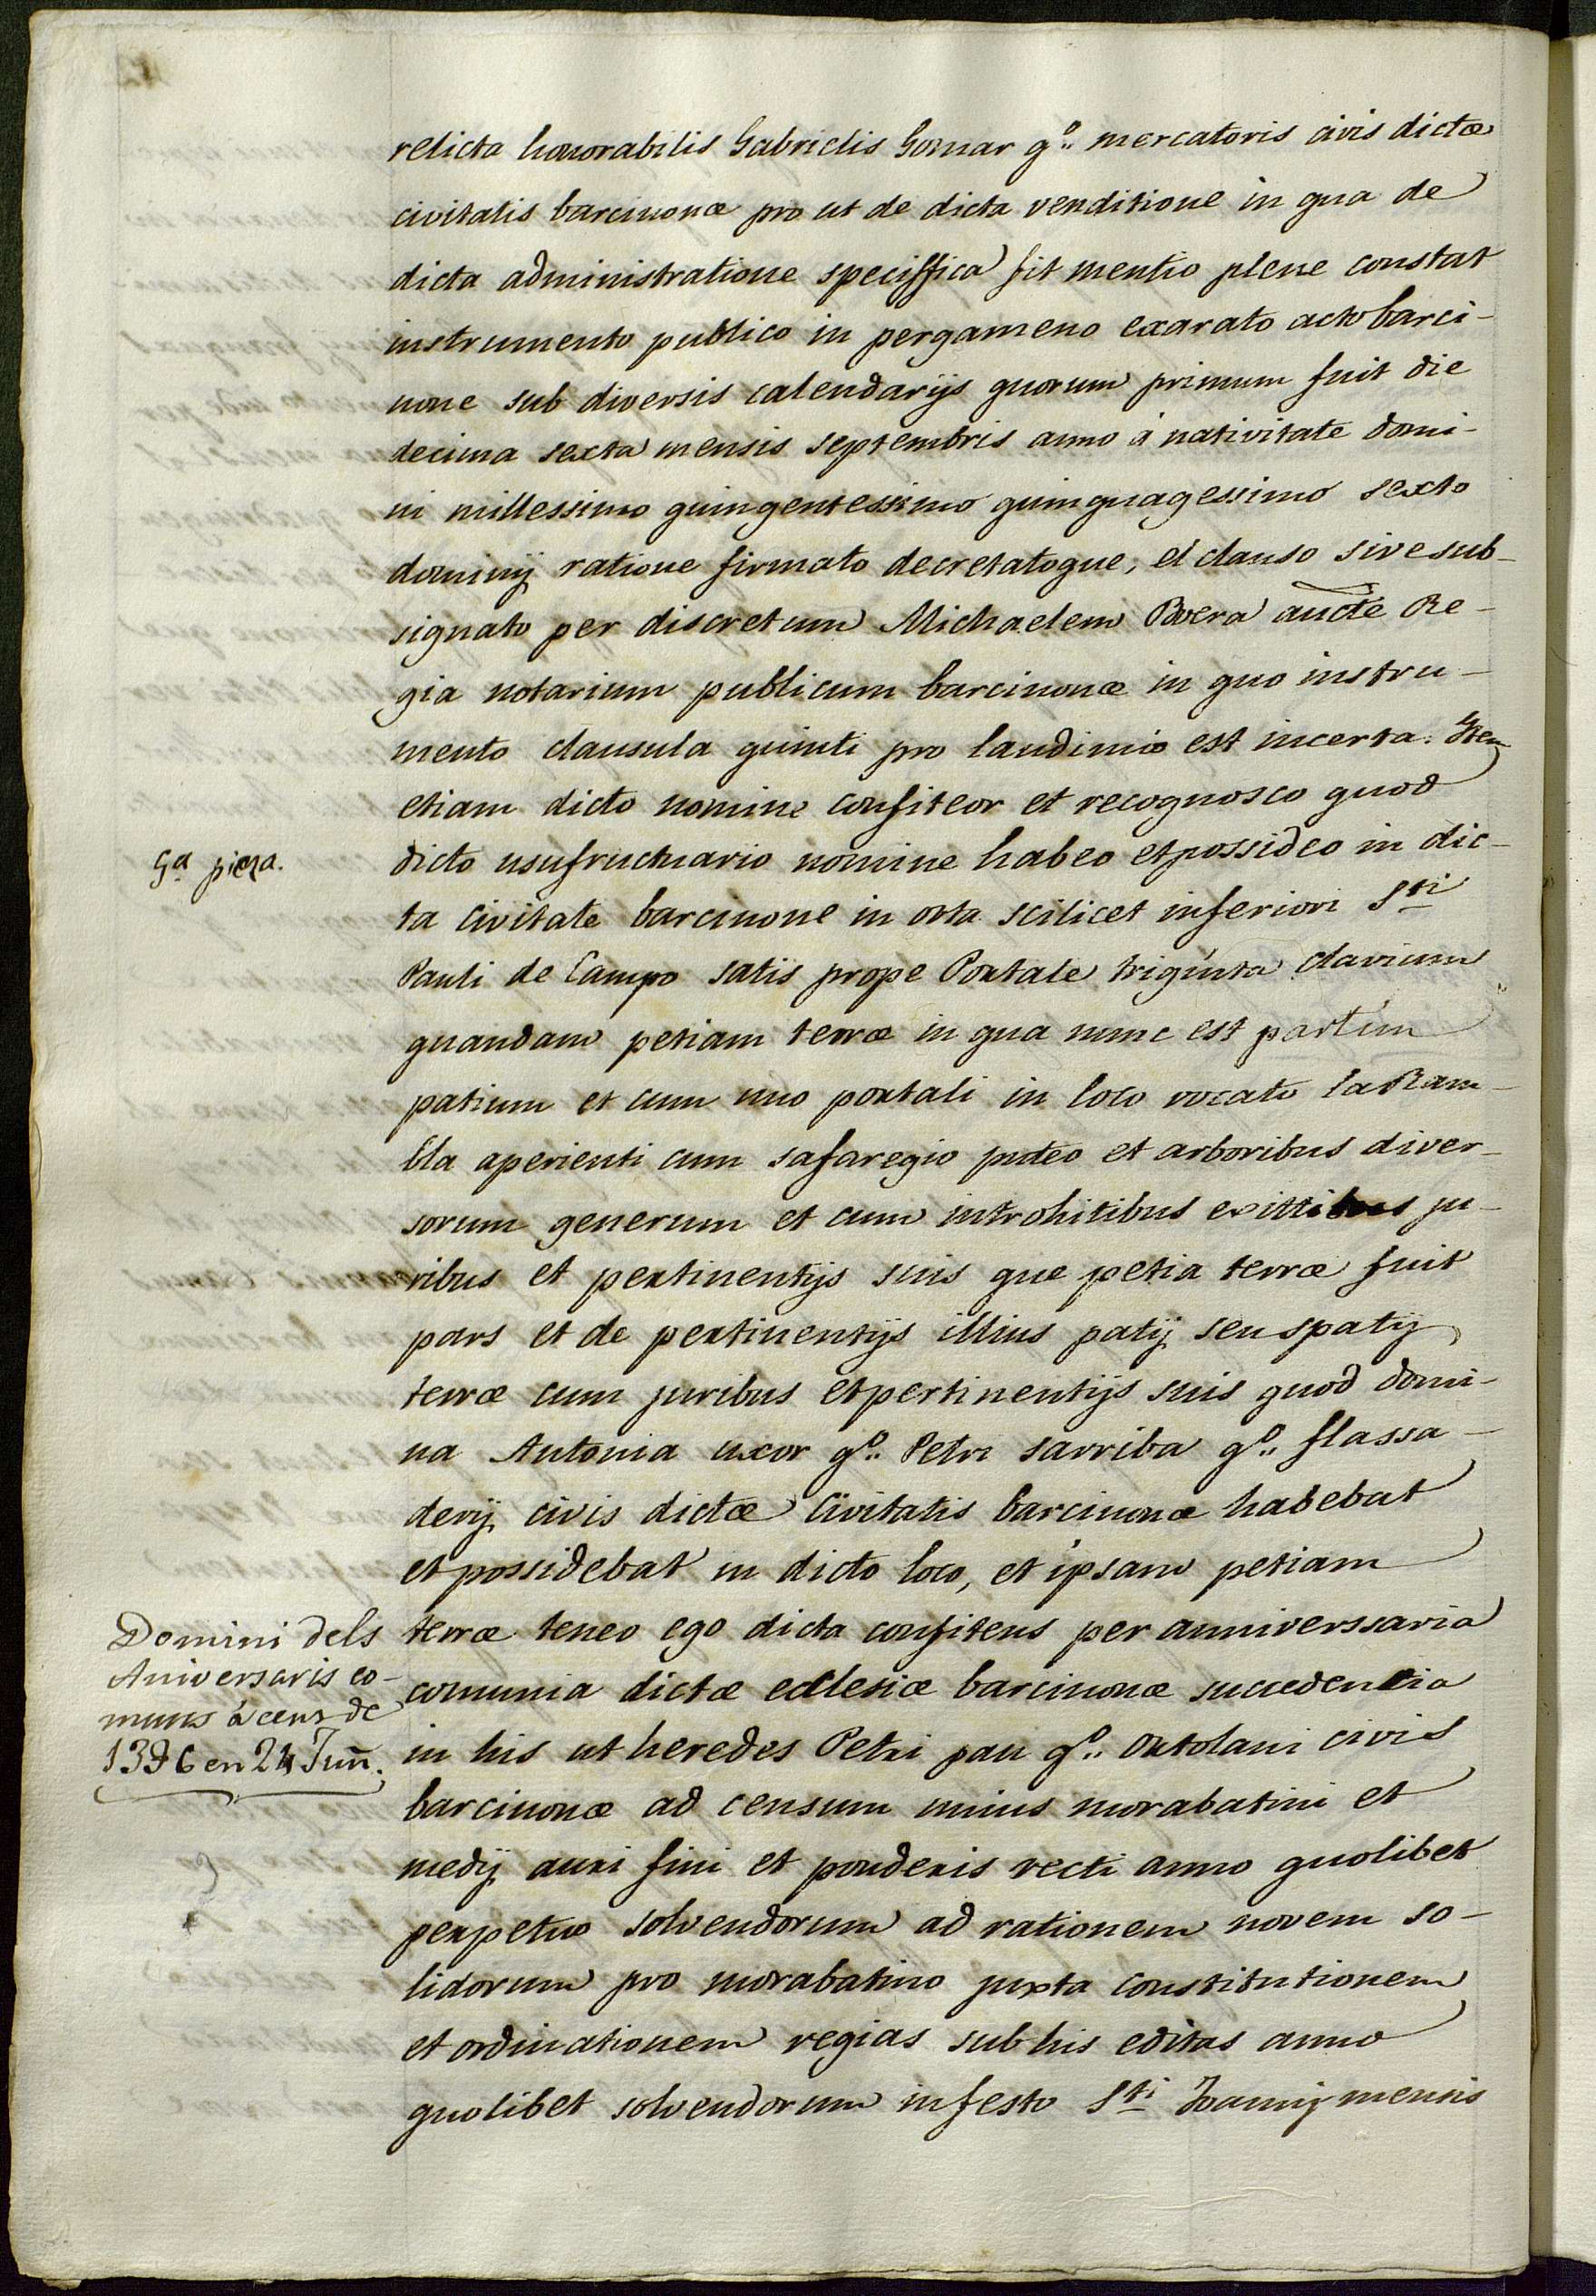 relicta honorabilis Gabrielis Gomar qº. mercatoris civis dictæ
civitatis barcinonæ pro ut de dicta venditione in qua de
dicta administratione speciffica fit mentio plene constat
instrumento publico in pergameno exarato acto barci-
none sub diversis calendarijs quorum primum fuit die
decima sexta mensis septembris anno á nativitate domi-
ni millessimo quingentessimo quinquagessimo sexto
dominij ratione firmato decretatoque, et clauso sive sub-
signato per discretum Michaelem Boera aucte Re-
gia notarium publicum barcinonæ in quo instru-
mento clausula quinti pro laudimio est incerta. Item
etiam dicto nomine confiteor et recognosco quod
5ª pieza.
dicto usufructuario nomine habeo et possideo in dic-
ta civitate barcinone in orta scilicet inferiori Sti
Pauli de Campo satis prope Portale triginta clavium
quandam petiam terræ in qua nunc est partim
patium et cum uno portali in loco vocato la Ram-
bla aperienti cum safaregio puteo et arboribus diver-
sorum generum et cum introhitibus exittibus ju-
ribus et pertinentijs suis que petia terræ fuit
pars et de pertinentijs illius patij seu spatij
terræ cum juribus et pertinentijs suis quod domi-
na Antonia uxor qº. Petri sarriba qº. flassa-
derij civis dictæ Civitatis barcinonæ habebat
et possidebat in dicto loco, et ipsam petiam
Domini dels
Aniversaris co-
muns á cens de
1396 en 24 Juñ.
terræ teneo ego dicta confitens per anniverssaria
comunia dictæ ecclesiæ barcinonæ succedentia
in his ut heredes Petri pau qº. Ortolani civis
barcinonæ ad censum unius morabatini et
medij auri fini et ponderis recti anno quolibet
perpetuo solvendorum ad rationem novem so-
lidorum pro morabatino juxta constitutionem
et ordinationem regias sub his editas anno
quolibet solvendorum in festo Sti Joannij mensis